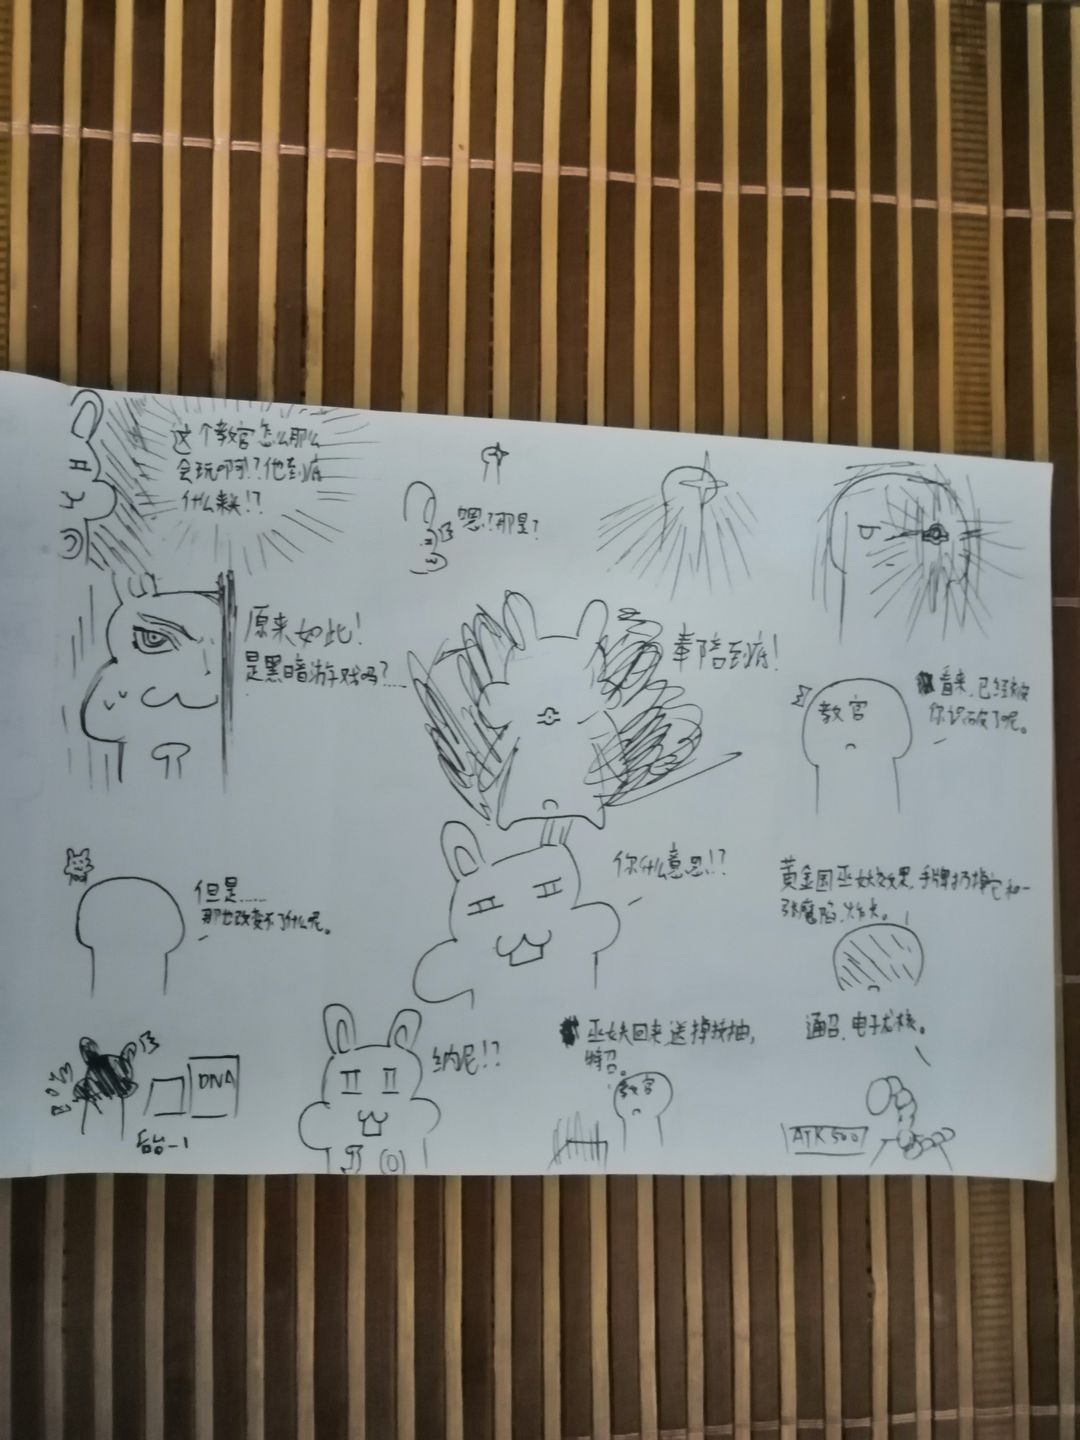 这个教官怎么那么
会玩啊!?他到底
什么来头!?
嗯?那是?
原来如此!
是黑暗游戏吗?……
奉陪到底!
看来,已经被
你识破了呢。
教官
但是……
那也改变不了什么呢。
你什么意思!?
黄金国巫妖效果,手牌扔掉它和一
张魔陷,炸大。
DNA
后台-1
纳尼!?
巫妖回来,送掉技抽,
特召。
教官
通召,电子龙核。
ATK 500